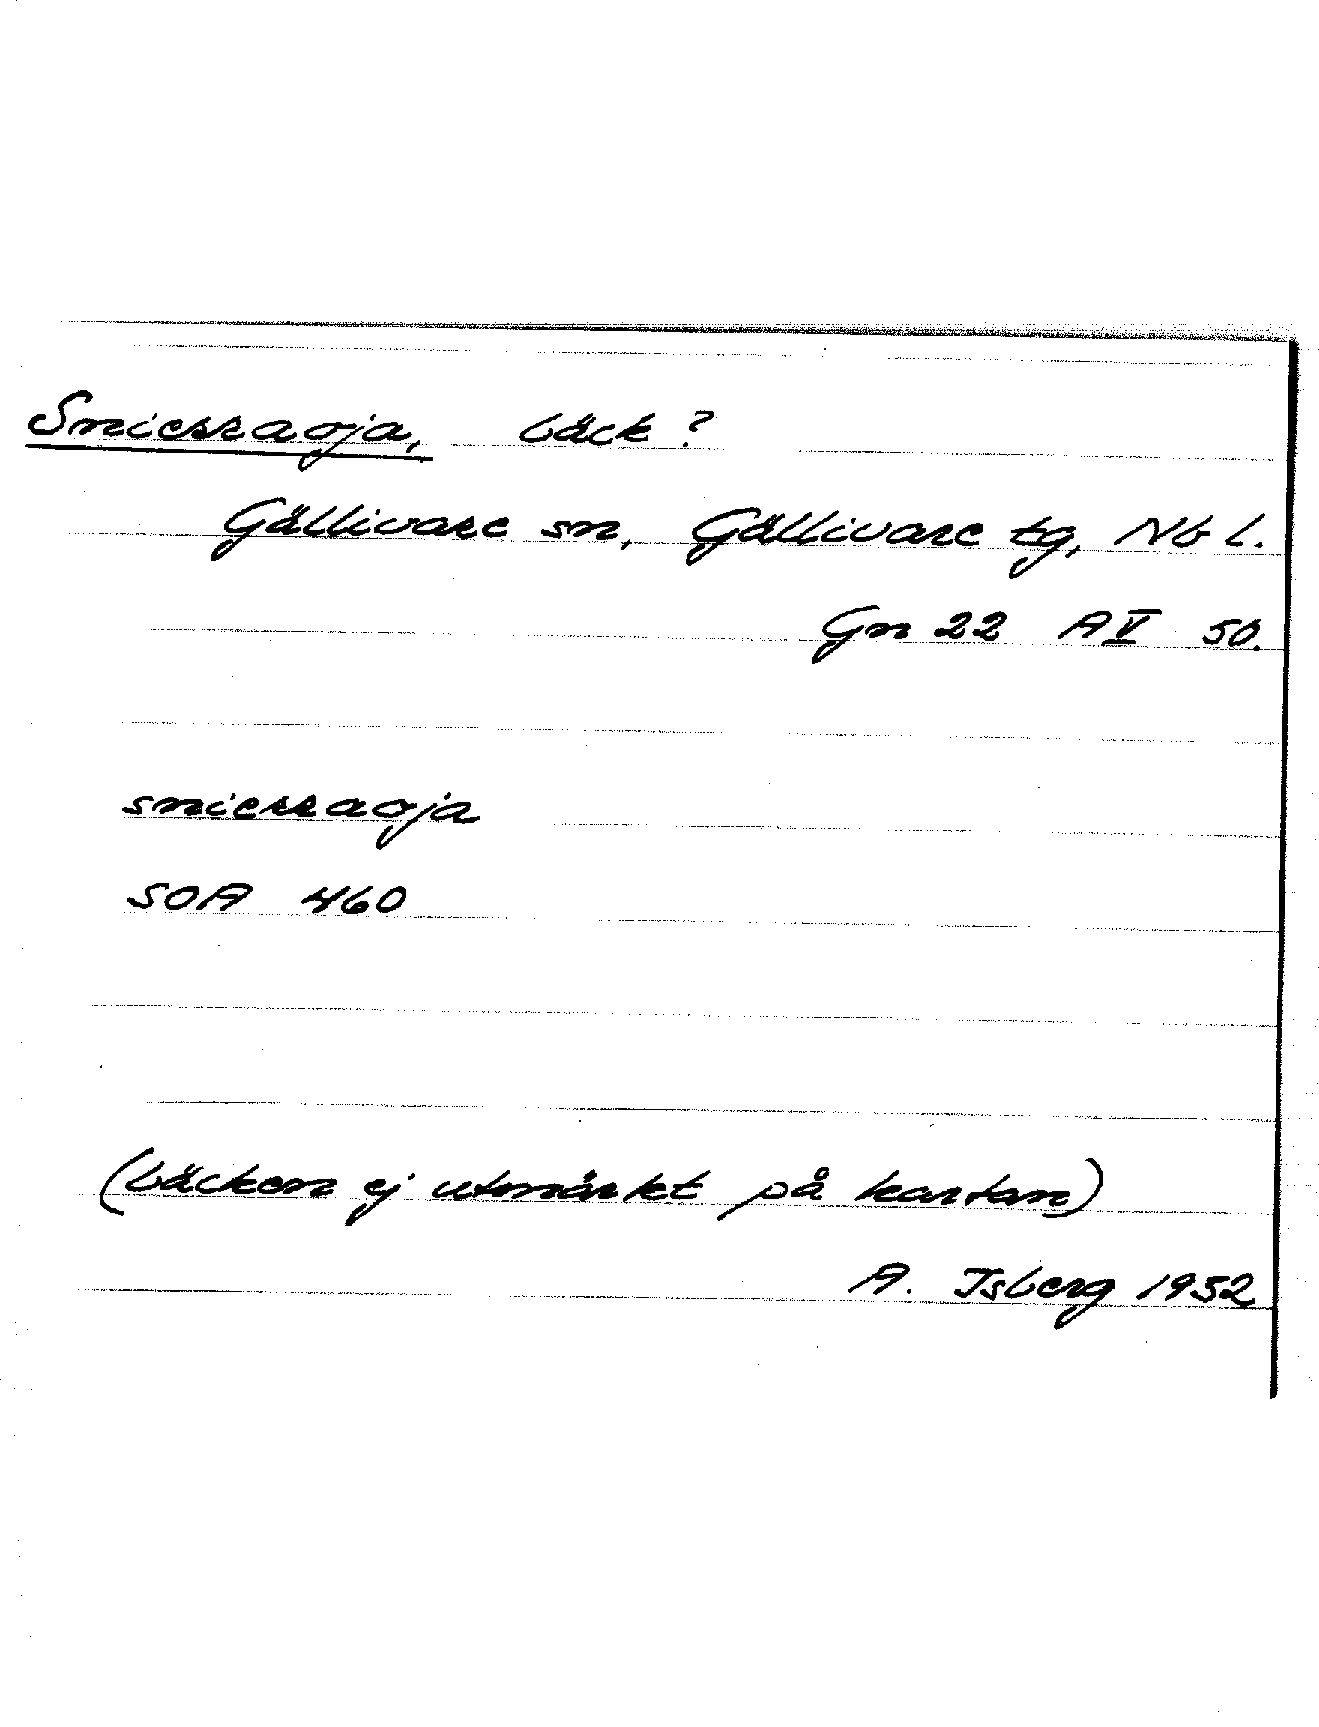 Snierraoja, bäck?
Gällivare sn, Gällivare tg, Nb l.
Gn 22 A V 50.
snierraoja
SOA 460
(bäcken ej utmärkt på kartan)
A. Isberg 1952